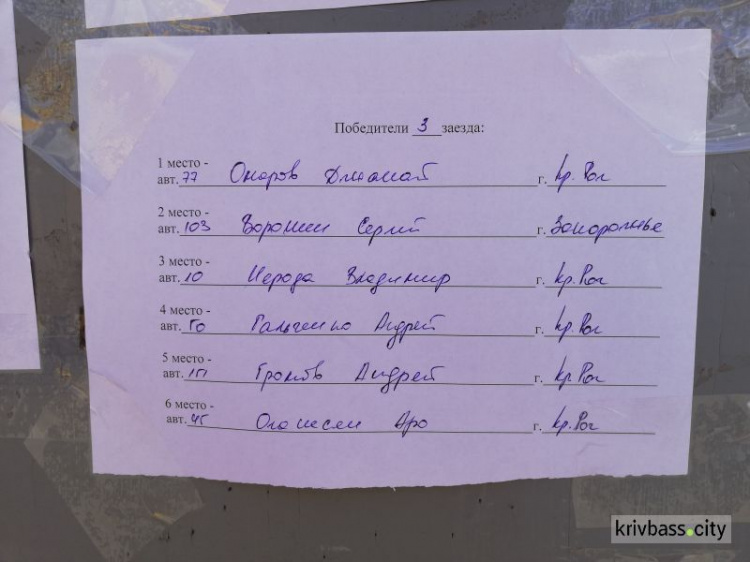 Победители 3 заезда:
1 место -
авт. 77 Омаров Джамал г. Кр. Рог
2 место -
авт. 103 Воронин Сергей г. Запорожье
3 место -
авт. 10 Владимир г. Кр. Рог
4 место -
авт. Гальченко Андрей г. Кр. Рог
5 место -
авт. Громов Андрей г. Кр. Рог
6 место -
авт. Оганесян Аро г. Кр. Рог
krivbass.city